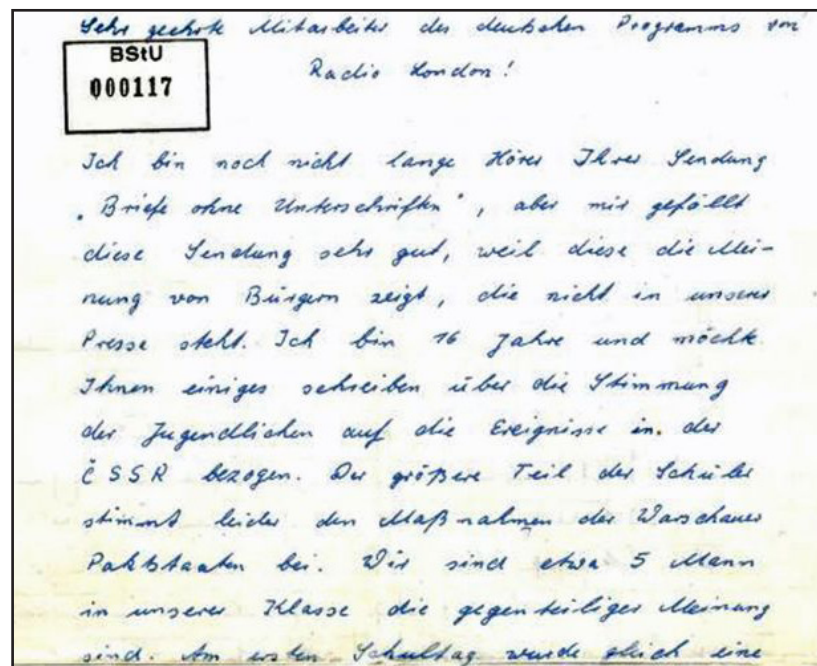 Sehr geehrte Mitarbeiter des deutschen Programms von
Radio London!
BStU
000117
Ich bin noch nicht lange Hörer Ihrer Sendung
„Briefe ohne Unterschriften", aber mir gefällt
diese Sendung sehr gut, weil diese die Mei-
nung von Bürgern zeigt, die nicht in unserer
Presse steht. Ich bin 16 Jahre und möchte
Ihnen einiges schreiben über die Stimmung
der Jugendlichen auf die Ereignisse in der
ČSSR bezogen. Der größere Teil der Schüler
stimmt leider den Maßnahmen der Warschauer
Paktstaaten bei. Wir sind etwa 5 Mann
in unserer Klasse die gegenteiliger Meinung
sind. Am ersten Schultag wurde gleich eine